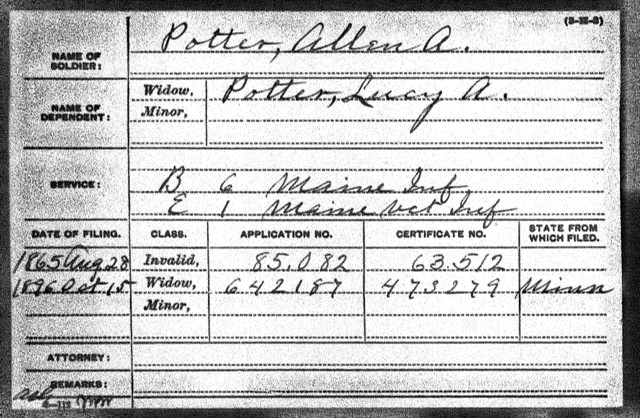 (3-III-3)
NAME OF SOLDIER: Potter, Allen A.
NAME OF DEPENDENT: Widow, Potter, Lucy A.
Minor,
SERVICE: B 6 Maine Inf
E 1 Maine Vet Inf
DATE OF FILING. CLASS. APPLICATION NO. CERTIFICATE NO. STATE FROM WHICH FILED.
1865 Aug 28 Invalid, 85.082 63.512
1896 Oct 15 Widow, 642187 473279 Minn
Minor,
ATTORNEY:
REMARKS: